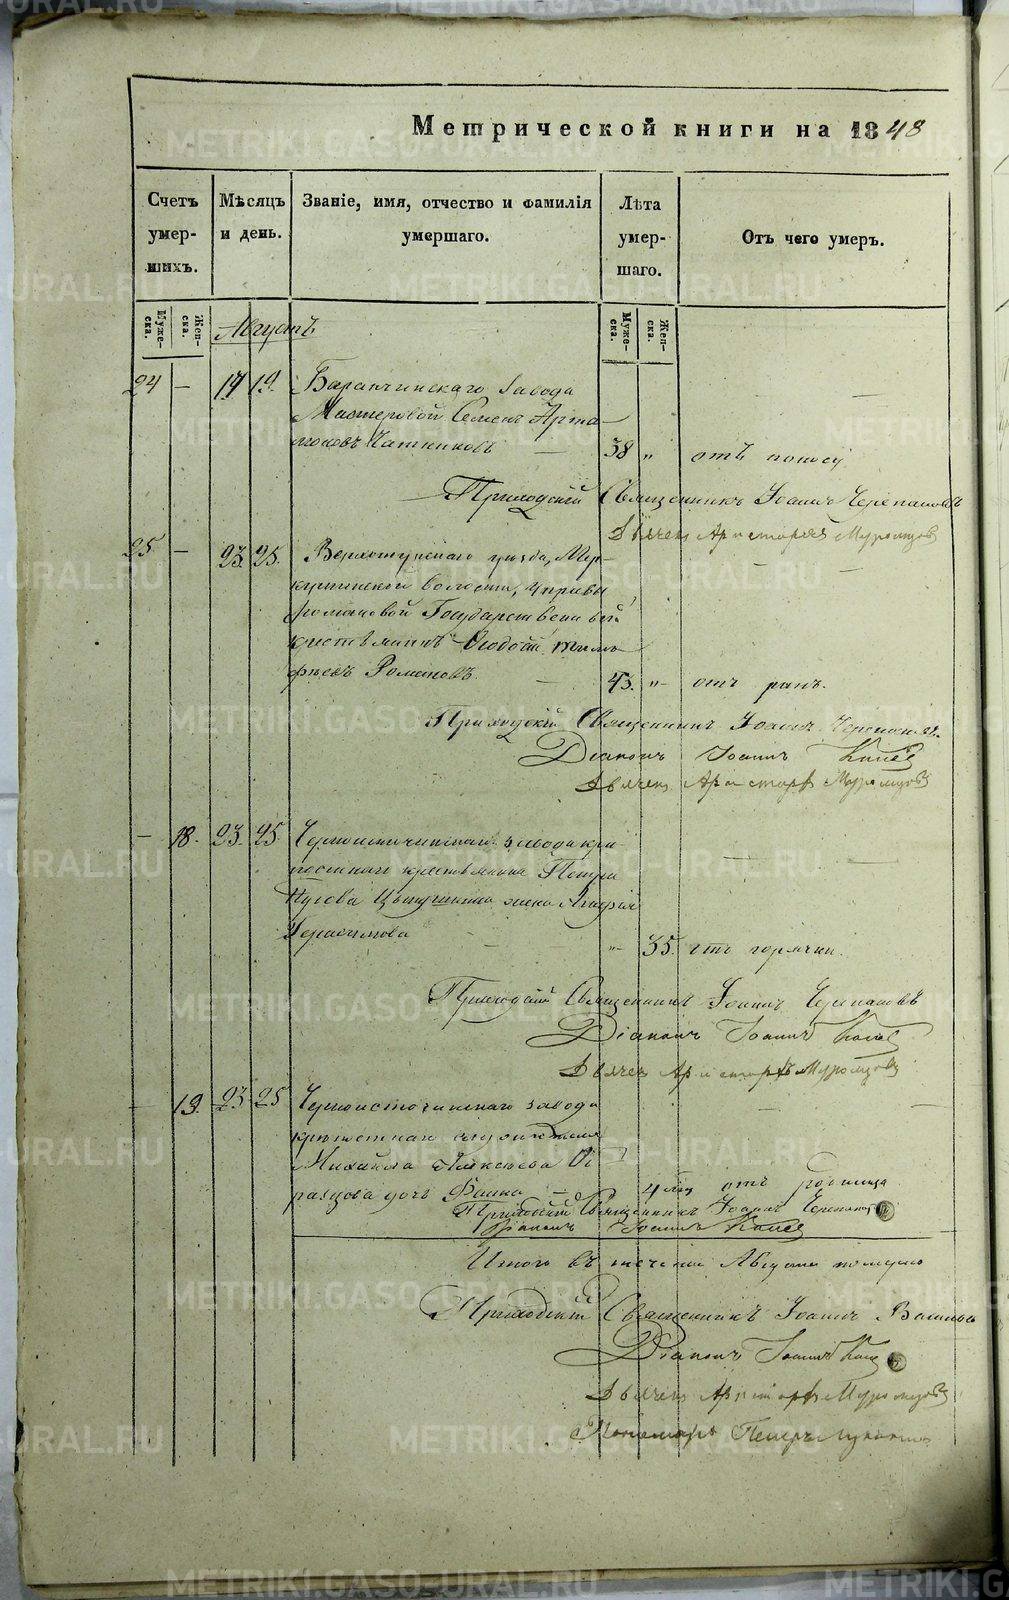 Метрической книги на 1848
Счетъ умершихъ.
Мѣсяцъ и день.
Званіе, имя, отчество и фамилія умершаго.
Лѣта умершаго.
Отъ чего умеръ.
Мужеска.
Женска.
Августъ
Мужеска.
Женска.
24 — 17 19. Баранчинскаго завода
Мастеровой Семенъ Арта-
38 " отъ
Приходскій Священникъ Іоаннъ Черепановъ
Дьячекъ Аристархъ Муромцовъ
25 — 23. 25. Верхотурскаго уѣзда, Мер-
кушинской волости,
Романовой Государственный
крестьянинъ Тимо-
фѣевъ Романовъ 43. " отъ ранъ.
Приходскій Священникъ Іоаннъ Черепановъ
Діаконъ Іоаннъ
Дьячекъ Аристархъ Муромцовъ
— 18. 23. 25. Черноисточинскаго завода крѣ-
постнаго крестьянина Петра
жена
Герасимова " 35. отъ горячки.
Приходскій Священникъ Іоаннъ Черепановъ
Діаконъ Іоаннъ
Дьячекъ Аристархъ Муромцовъ
— 19. 23 25 Черноисточинскаго завода
крѣпостнаго
Михайла Алексѣева
дочь 4 отъ родимца
Приходскій Священникъ Іоаннъ Черепановъ
Діаконъ Іоаннъ
Итого въ теченіи Августа померло
Приходскій Священникъ Іоаннъ
Діаконъ Іоаннъ
Дьячекъ Аристархъ Муромцовъ
Пономарь Петръ
METRIKI.GASO-URAL.RU